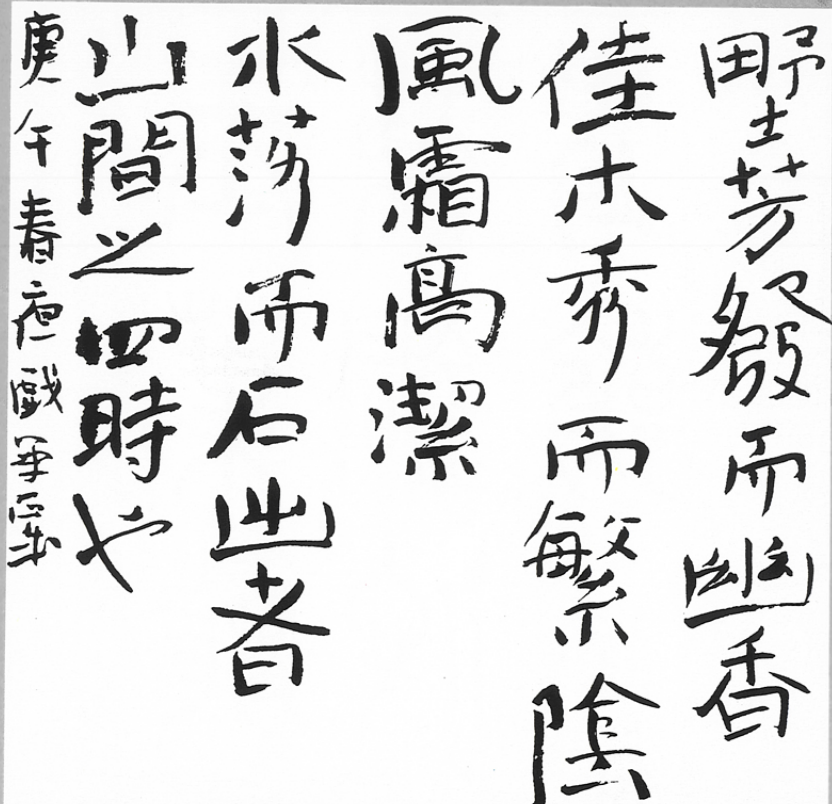 野芳發而幽香
佳木秀而繁陰
風霜高潔
水落而石出者
山間之四時也
庚午春夜戲筆